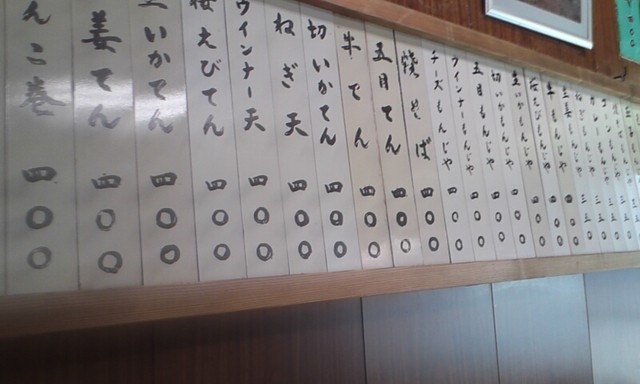 牛もんじゃ 四〇〇
桜えびもんじゃ 四〇〇
生いかもんじゃ 四〇〇
切いかもんじゃ 四〇〇
五目もんじゃ 四〇〇
ウインナーもんじゃ 四〇〇
チーズもんじゃ 四〇〇
焼そば 四〇〇
五目てん 四〇〇
牛てん 四〇〇
切いかてん 四〇〇
ねぎ天 四〇〇
ウインナー天 四〇〇
桜えびてん 四〇〇
生いかてん 四〇〇
姜てん 四〇〇
んこ巻 四〇〇